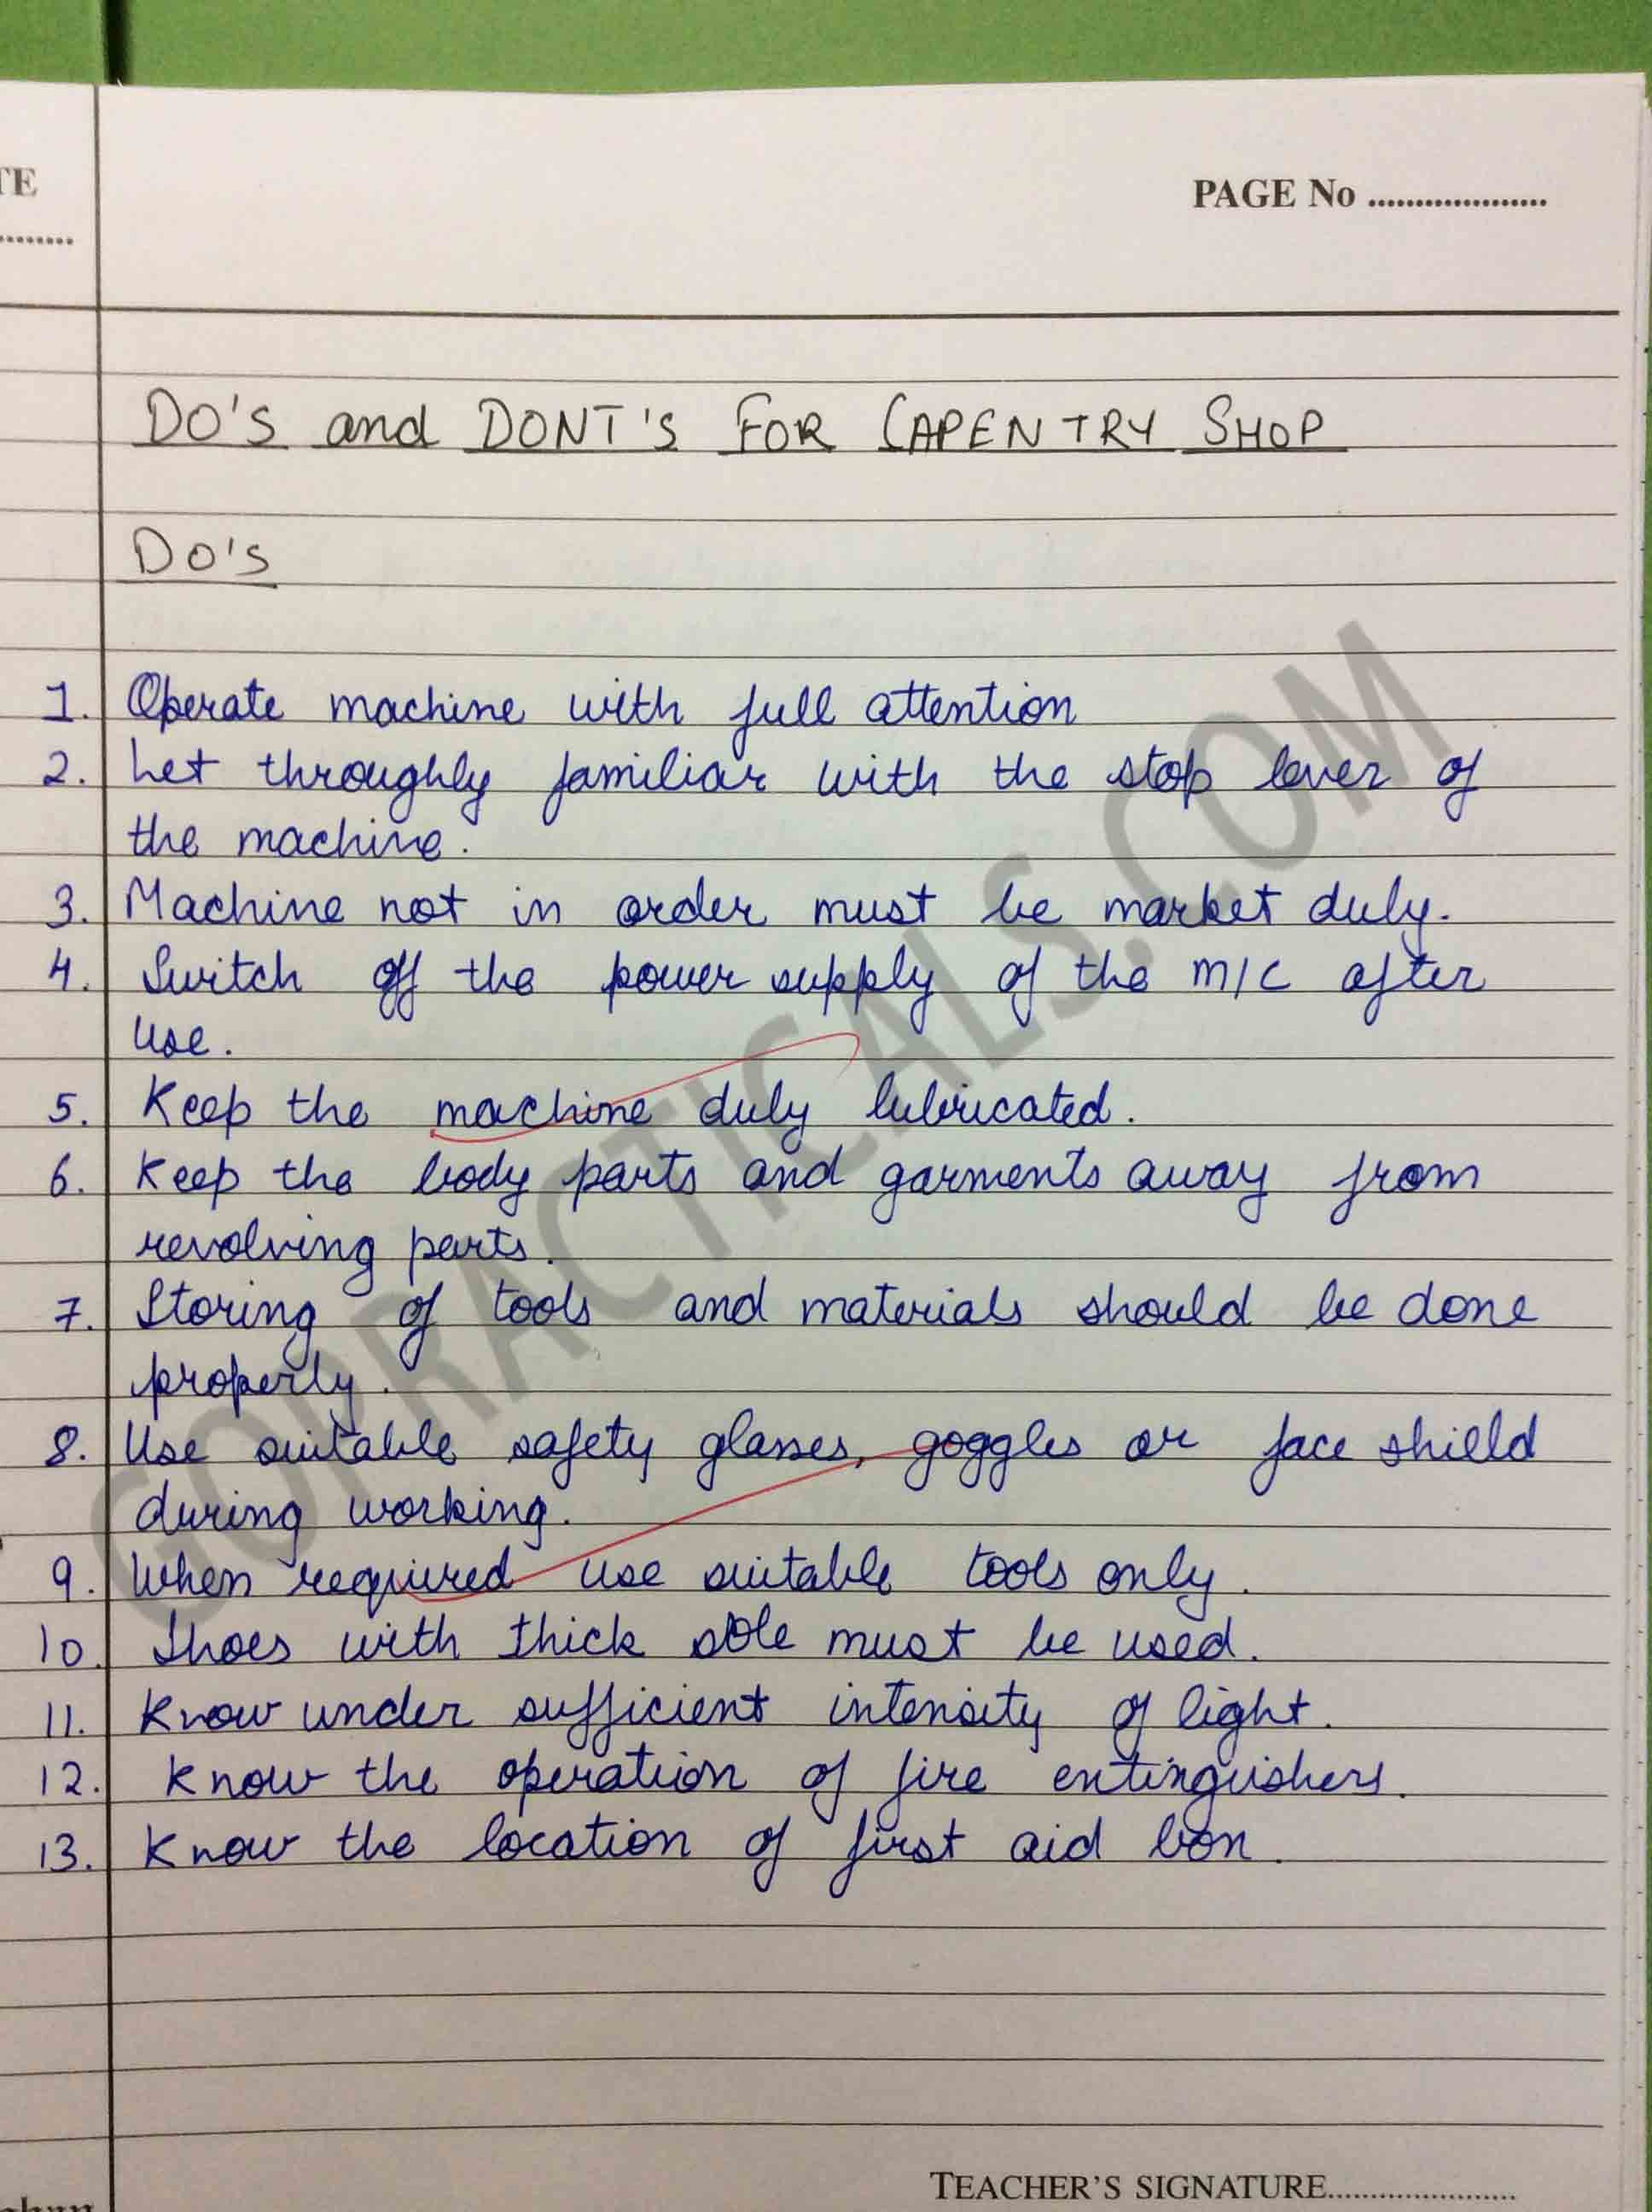 TE
PAGE No ....................
........
DO'S and DONT'S FOR CAPENTRY SHOP
DO'S
1. Operate machine with full attention
2. Let throughly familiar with the stop lever of
the machine.
3. Machine not in order must be market duly.
4. Switch off the power supply of the m/c after
use.
5. Keep the machine duly lubricated.
6. Keep the body parts and garments away from
revolving parts.
7. Storing of tools and materials should be done
properly.
8. Use suitable safety glasses, goggles or face shield
during working.
9. When required use suitable tools only.
10. Shoes with thick sole must be used.
11. Know under sufficient intensity of light.
12. Know the operation of fire extinguishers.
13. Know the location of first aid box.
GOPRACTICALS.COM
TEACHER'S SIGNATURE.....................